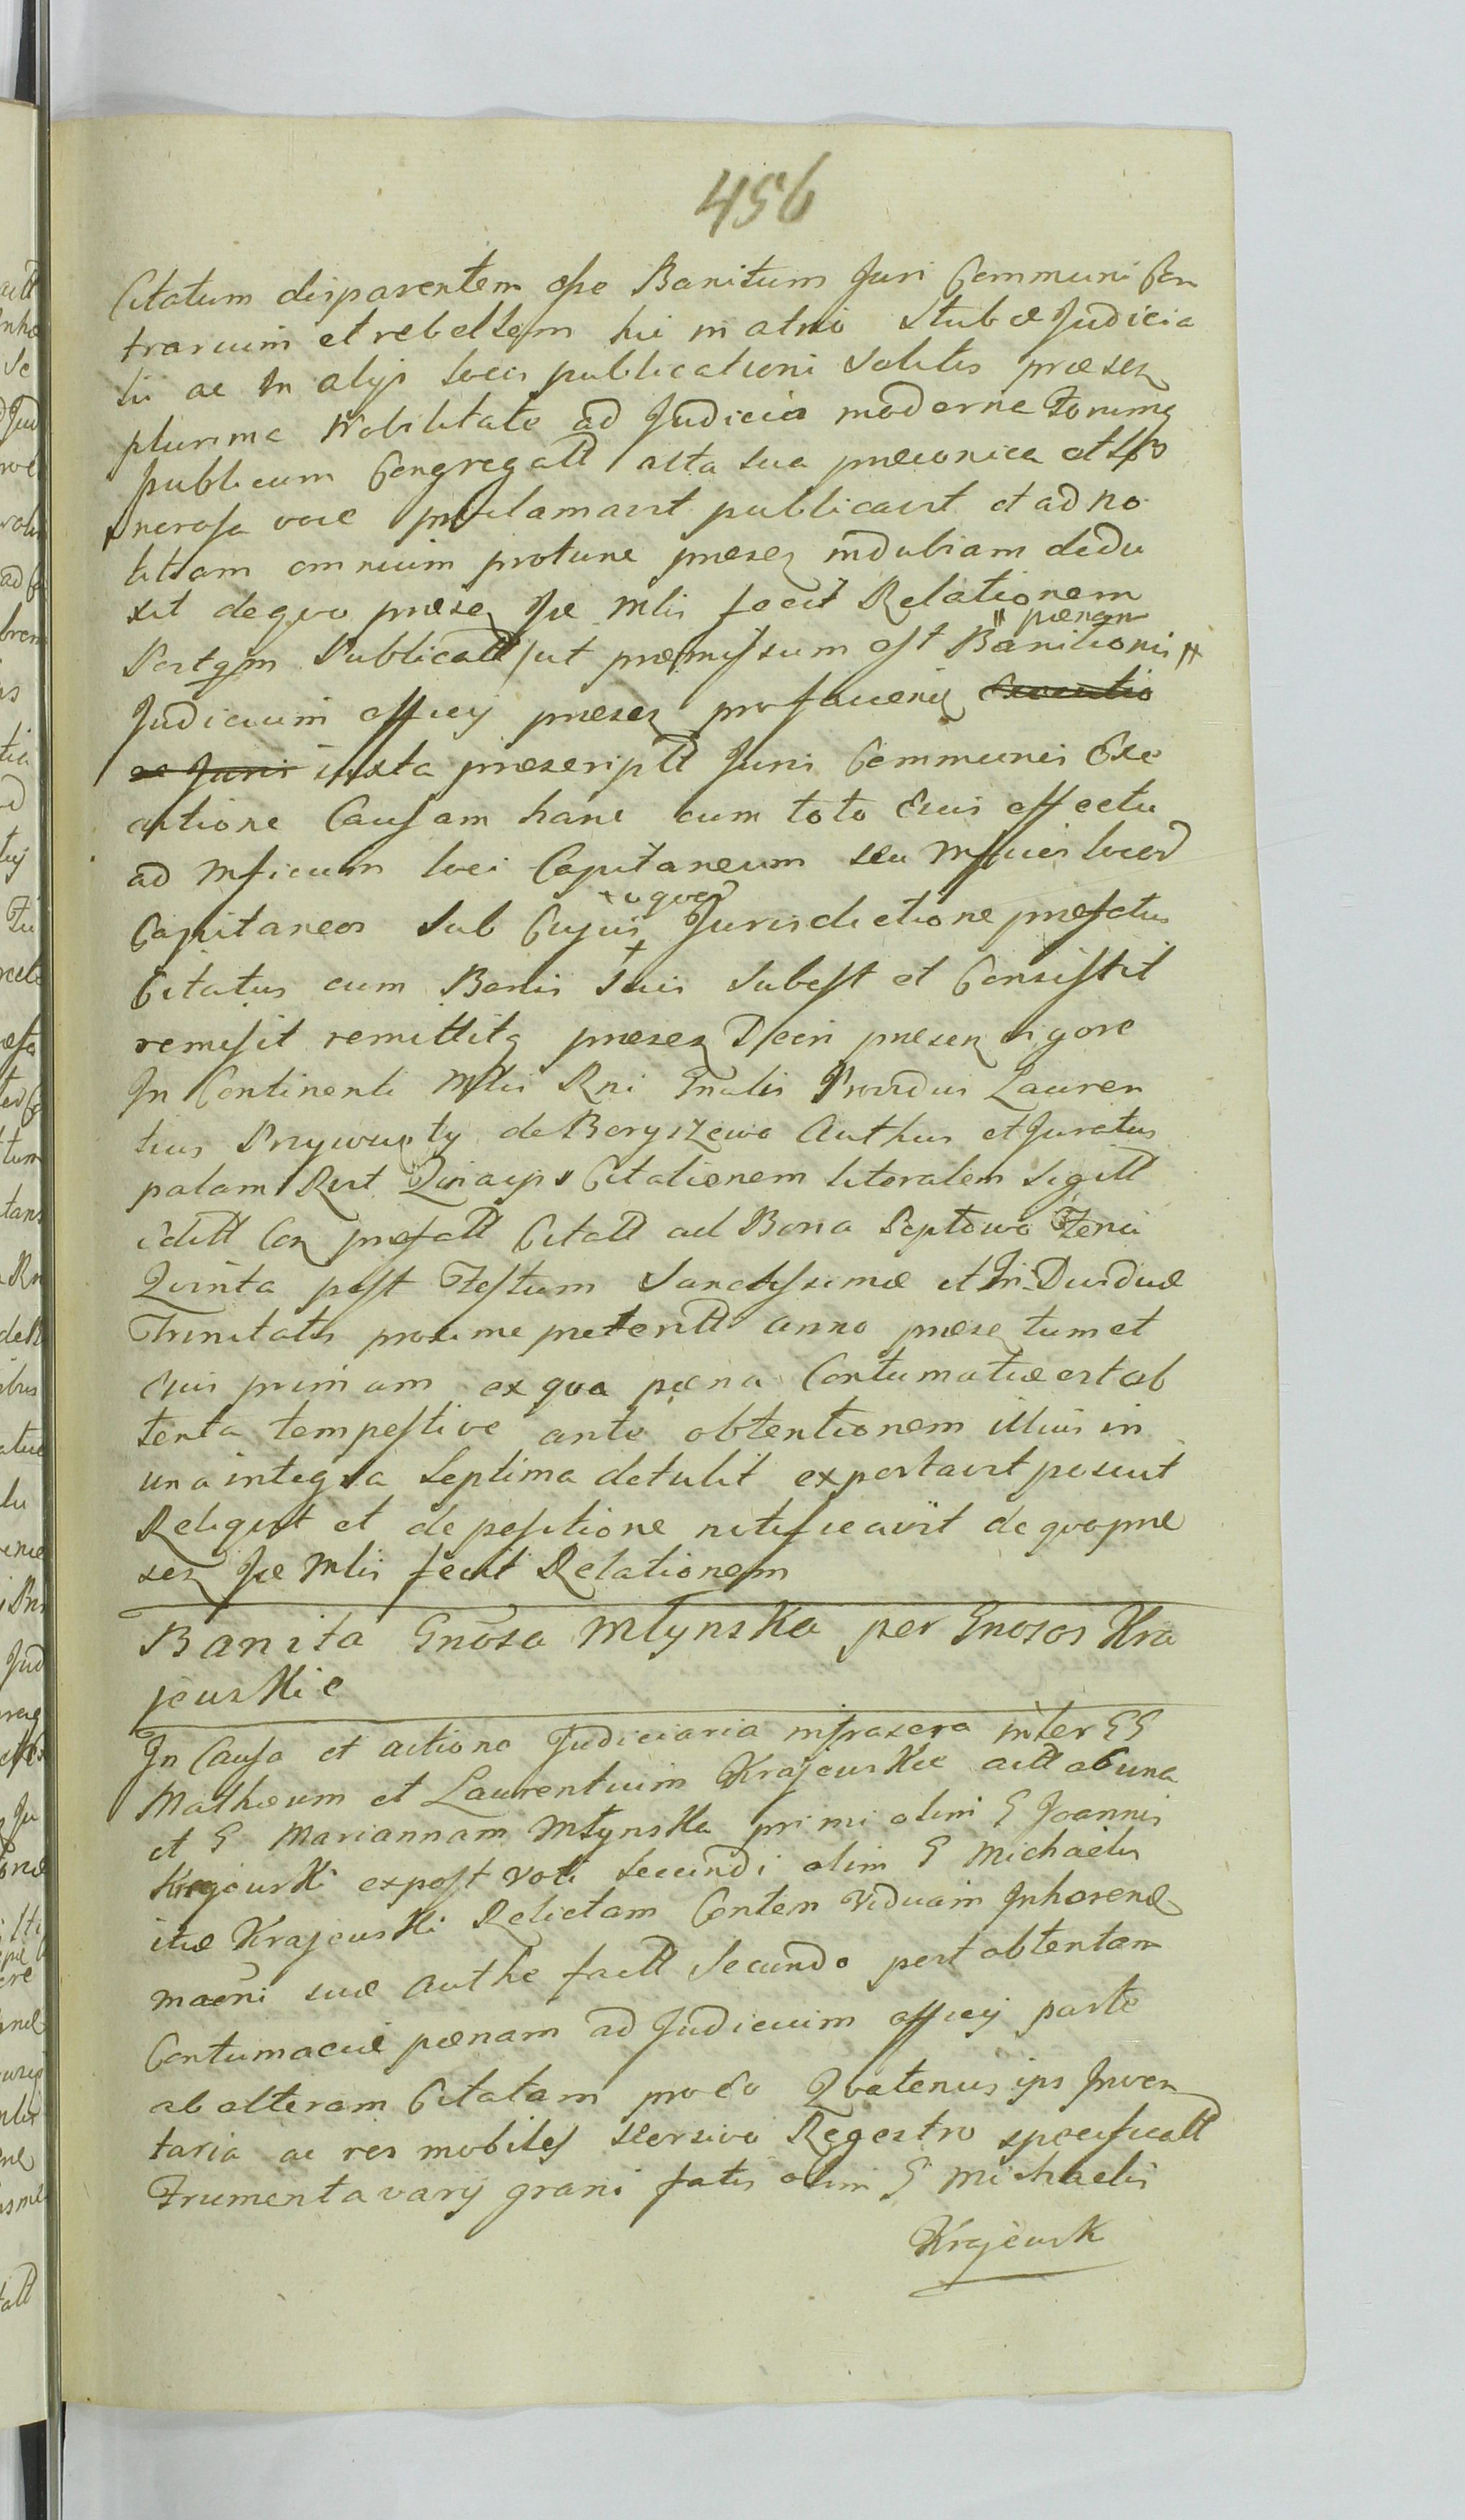 456
Citatum disparentem esse Banitum Juri Communi Con
trarium et rebellem hic in atrio Stubæ Judicia
lis ac in alijs locis publicationi solitis præsen
plurima Nobilitate ad Judicia moderna Forumq
publicum Congregatt alta sua præconica et so
norosa voce proclamavit publicavit et ad no
titiam omnium protunc præsen indubiam dedu
xit de quo præsen Jœ Mlis fecit Relationem
Postqm Publicatt ut præmissum est Banitionis # " pœnam
Judicium officij præsen profavens Executio
ne Juris iuxta præscriptt Juris Communis Exe
cutione Causam hanc cum toto Eius effectu
ad Mficum loci Capitaneum seu Mficos locor
Capitaneos sub Cujus + + uqver Jurisdictione præfatus
Citatus cum Bonis suis subest et Consistit
remisit remittitq præsen Dcri præsen vigore
In Continenti Mlis Rni Gnalis Providus Lauren
tius Przywuzty de Boryszewo Authus et Juratus
palam Rvit Quia ips Citationem literalem sigill
editt Con præfatt Citatt ad Bona Septowo Feria
Quinta post Festum Sanctissimæ et In Dividuæ
Trinitatis proxime preteritt anno præsen tum et
eius primam ex qva pœna Contumatiæ est ob
tenta tempestive ante obtentionem illius in
una integra septima detulit exportavit posuit
Reliqvit et de positione notificavit de qvo præ
sen Jœ Mlis fecit Relationem
Banita Gnosa Młynska per Gnosos Kra
jewskie
In Causa et actione Judiciaria infrascra inter GG
Mathæum et Laurentium Krajewskie actt ab una
et G Mariannam Młynska primi olim G Joannis
Krajewski expost voti secundi olim G Michaelis
itæ Krajewski Relictam Conten viduam Inhæren
maōni suæ Authe factt Secundo post obtentam
Contumaciæ pœnam ad Judicium officij parte
ab alteram Citatam pro eo Qvatenus ips Inven
taria ac res mobiles seorsivo Regestro specificatt
Frumenta varij grani fatis olim G Michaelis
Krajewsk